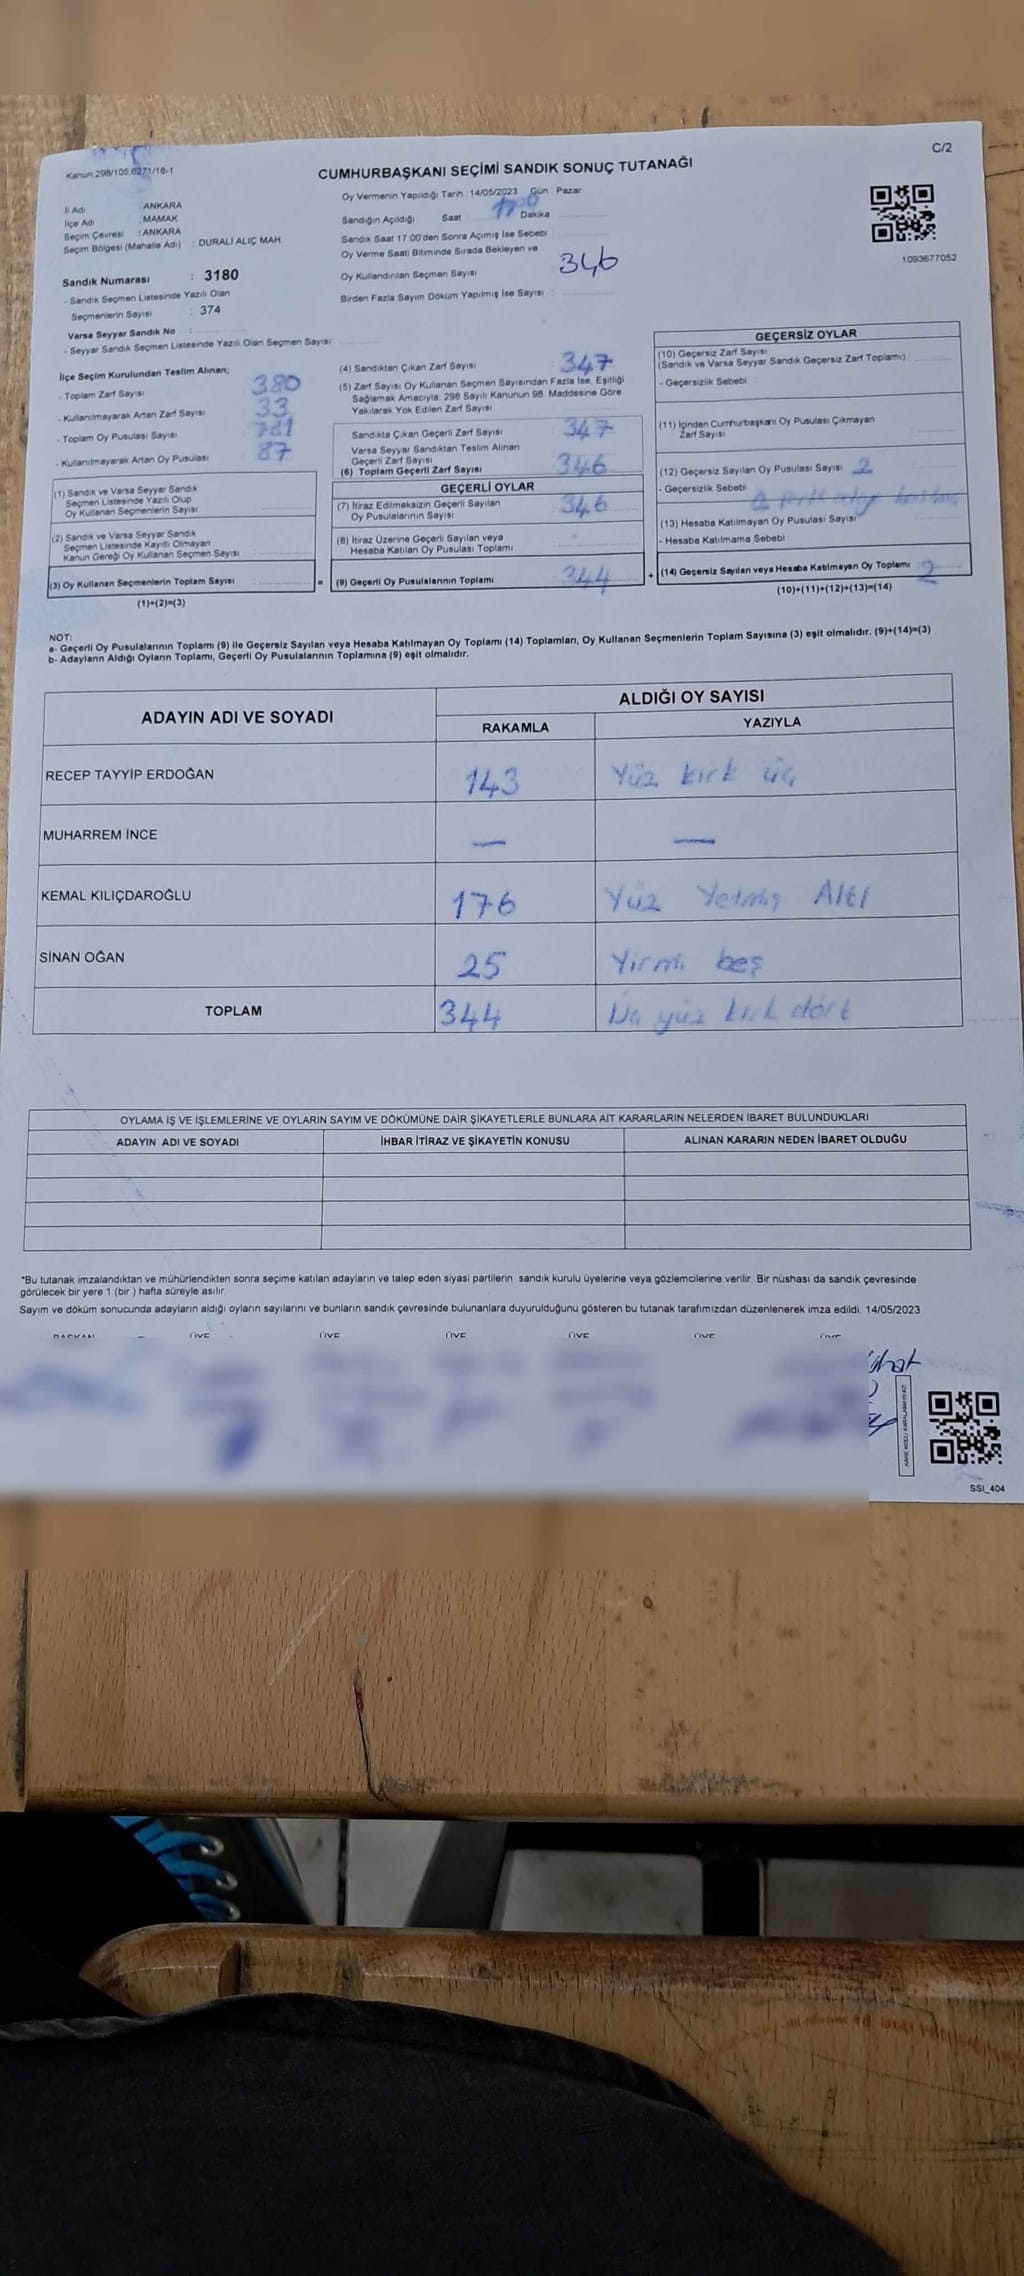 C/2
Kanun:298/105:6271/18-1
CUMHURBAŞKANI SEÇİMİ SANDIK SONUÇ TUTANAĞI
İl Adı : ANKARA
İlçe Adı : MAMAK
Seçim Çevresi : ANKARA
Seçim Bölgesi (Mahalle Adı) : DURALİ ALIÇ MAH.
Oy Vermenin Yapıldığı Tarih : 14/05/2023 Gün : Pazar
Sandığın Açıldığı Saat Dakika
Sandık Saat 17:00'den Sonra Açımış İse Sebebi :
Oy Verme Saati Bitiminde Sırada Bekleyen ve
Oy Kullandırılan Seçmen Sayısı 346
Birden Fazla Sayım Döküm Yapılmış İse Sayısı :
1093677052
Sandık Numarası : 3180
- Sandık Seçmen Listesinde Yazılı Olan
Seçmenlerin Sayısı : 374
Varsa Seyyar Sandık No :
- Seyyar Sandık Seçmen Listesinde Yazılı Olan Seçmen Sayısı:
İlçe Seçim Kurulundan Teslim Alınan;
- Toplam Zarf Sayısı : 380
- Kullanılmayarak Artan Zarf Sayısı : 33
- Toplam Oy Pusulası Sayısı : 781
- Kullanılmayarak Artan Oy Pusulası : 87
(1) Sandık ve Varsa Seyyar Sandık
Seçmen Listesinde Yazılı Olup
Oy Kullanan Seçmenlerin Sayısı :
(2) Sandık ve Varsa Seyyar Sandık
Seçmen Listesinde Kayıtlı Olmayan
Kanun Gereği Oy Kullanan Seçmen Sayısı :
(3) Oy Kullanan Seçmenlerin Toplam Sayısı :
(1)+(2)=(3)
(4) Sandıktan Çıkan Zarf Sayısı : 347
(5) Zarf Sayısı Oy Kullanan Seçmen Sayısından Fazla İse, Eşitliği
Sağlamak Amacıyla; 298 Sayılı Kanunun 98. Maddesine Göre
Yakılarak Yok Edilen Zarf Sayısı :
Sandıkta Çıkan Geçerli Zarf Sayısı : 347
Varsa Seyyar Sandıktan Teslim Alınan
Geçerli Zarf Sayısı :
(6) Toplam Geçerli Zarf Sayısı 346
GEÇERLİ OYLAR
(7) İtiraz Edilmeksizin Geçerli Sayılan
Oy Pusulalarının Sayısı : 346
(8) İtiraz Üzerine Geçerli Sayılan veya
Hesaba Katılan Oy Pusulası Toplamı :
= (9) Geçerli Oy Pusulalarının Toplamı : 344
GEÇERSİZ OYLAR
(10) Geçersiz Zarf Sayısı
(Sandık ve Varsa Seyyar Sandık Geçersiz Zarf Toplamı) :
- Geçersizlik Sebebi :
(11) İçinden Cumhurbaşkanı Oy Pusulası Çıkmayan
Zarf Sayısı
(12) Geçersiz Sayılan Oy Pusulası Sayısı : 2
- Geçersizlik Sebebi
(13) Hesaba Katılmayan Oy Pusulası Sayısı
- Hesaba Katılmama Sebebi :
+ (14) Geçersiz Sayılan veya Hesaba Katılmayan Oy Toplamı : 2
(10)+(11)+(12)+(13)=(14)
NOT:
a- Geçerli Oy Pusulalarının Toplamı (9) ile Geçersiz Sayılan veya Hesaba Katılmayan Oy Toplamı (14) Toplamları, Oy Kullanan Seçmenlerin Toplam Sayısına (3) eşit olmalıdır. (9)+(14)=(3)
b- Adayların Aldığı Oyların Toplamı, Geçerli Oy Pusulalarının Toplamına (9) eşit olmalıdır.
ADAYIN ADI VE SOYADI
ALDIĞI OY SAYISI
RAKAMLA YAZIYLA
RECEP TAYYİP ERDOĞAN 143 Yüz kırk üç
MUHARREM İNCE — —
KEMAL KILIÇDAROĞLU 176 Yüz Yetmiş Altı
SİNAN OĞAN 25 Yirmi beş
TOPLAM 344 yüz kırk dört
OYLAMA İŞ VE İŞLEMLERİNE VE OYLARIN SAYIM VE DÖKÜMÜNE DAİR ŞİKAYETLERLE BUNLARA AİT KARARLARIN NELERDEN İBARET BULUNDUKLARI
ADAYIN ADI VE SOYADI İHBAR İTİRAZ VE ŞİKAYETİN KONUSU ALINAN KARARIN NEDEN İBARET OLDUĞU
*Bu tutanak imzalandıktan ve mühürlendikten sonra seçime katılan adayların ve talep eden siyasi partilerin sandık kurulu üyelerine veya gözlemcilerine verilir. Bir nüshası da sandık çevresinde
görülecek bir yere 1 (bir) hafta süreyle asılır.
Sayım ve döküm sonucunda adayların aldığı oyların sayılarını ve bunların sandık çevresinde bulunanlara duyurulduğunu gösteren bu tutanak tarafımızdan düzenlenerek imza edildi. 14/05/2023
BAŞKAN ÜYE ÜYE ÜYE ÜYE ÜYE ÜYE
SSI_404